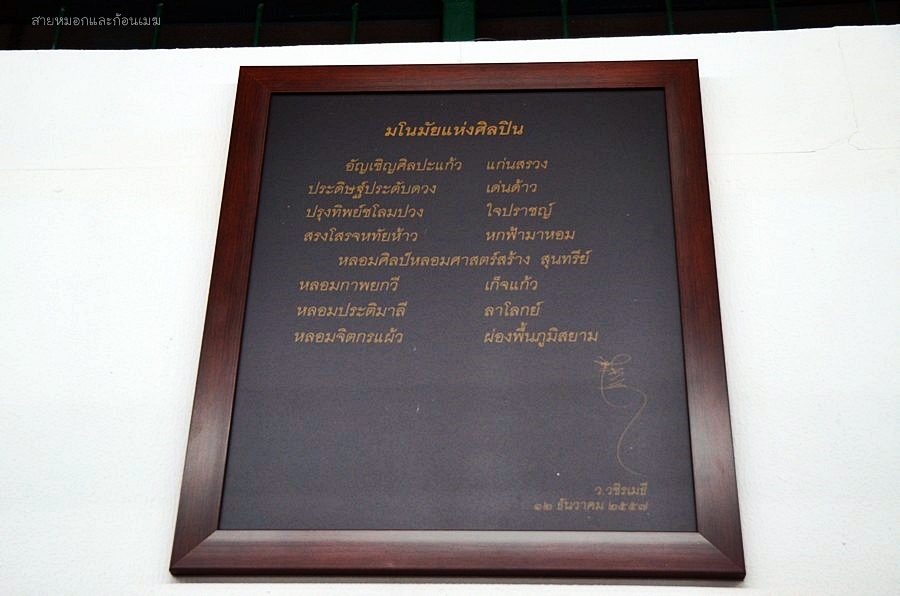 สายหมอกและก้อนเมฆ
มโนมัยแห่งศิลปิน
อัญเชิญศิลปะแก้ว แก่นสรวง
ประดิษฐ์ประดับดวง เด่นด้าว
ปรุงทิพย์ชโลมปวง ใจปราชญ์
สรงโสรจหทัยห้าว หกฟ้ามาหอม
หลอมศิลป์หลอมศาสตร์สร้าง สุนทรีย์
หลอมกาพยกวี เก็จแก้ว
หลอมประติมาลี ลาโลกย์
หลอมจิตกรแผ้ว ผ่องพื้นภูมิสยาม
ว.วชิรเมธี
๑๒ ธันวาคม ๒๕๕๗